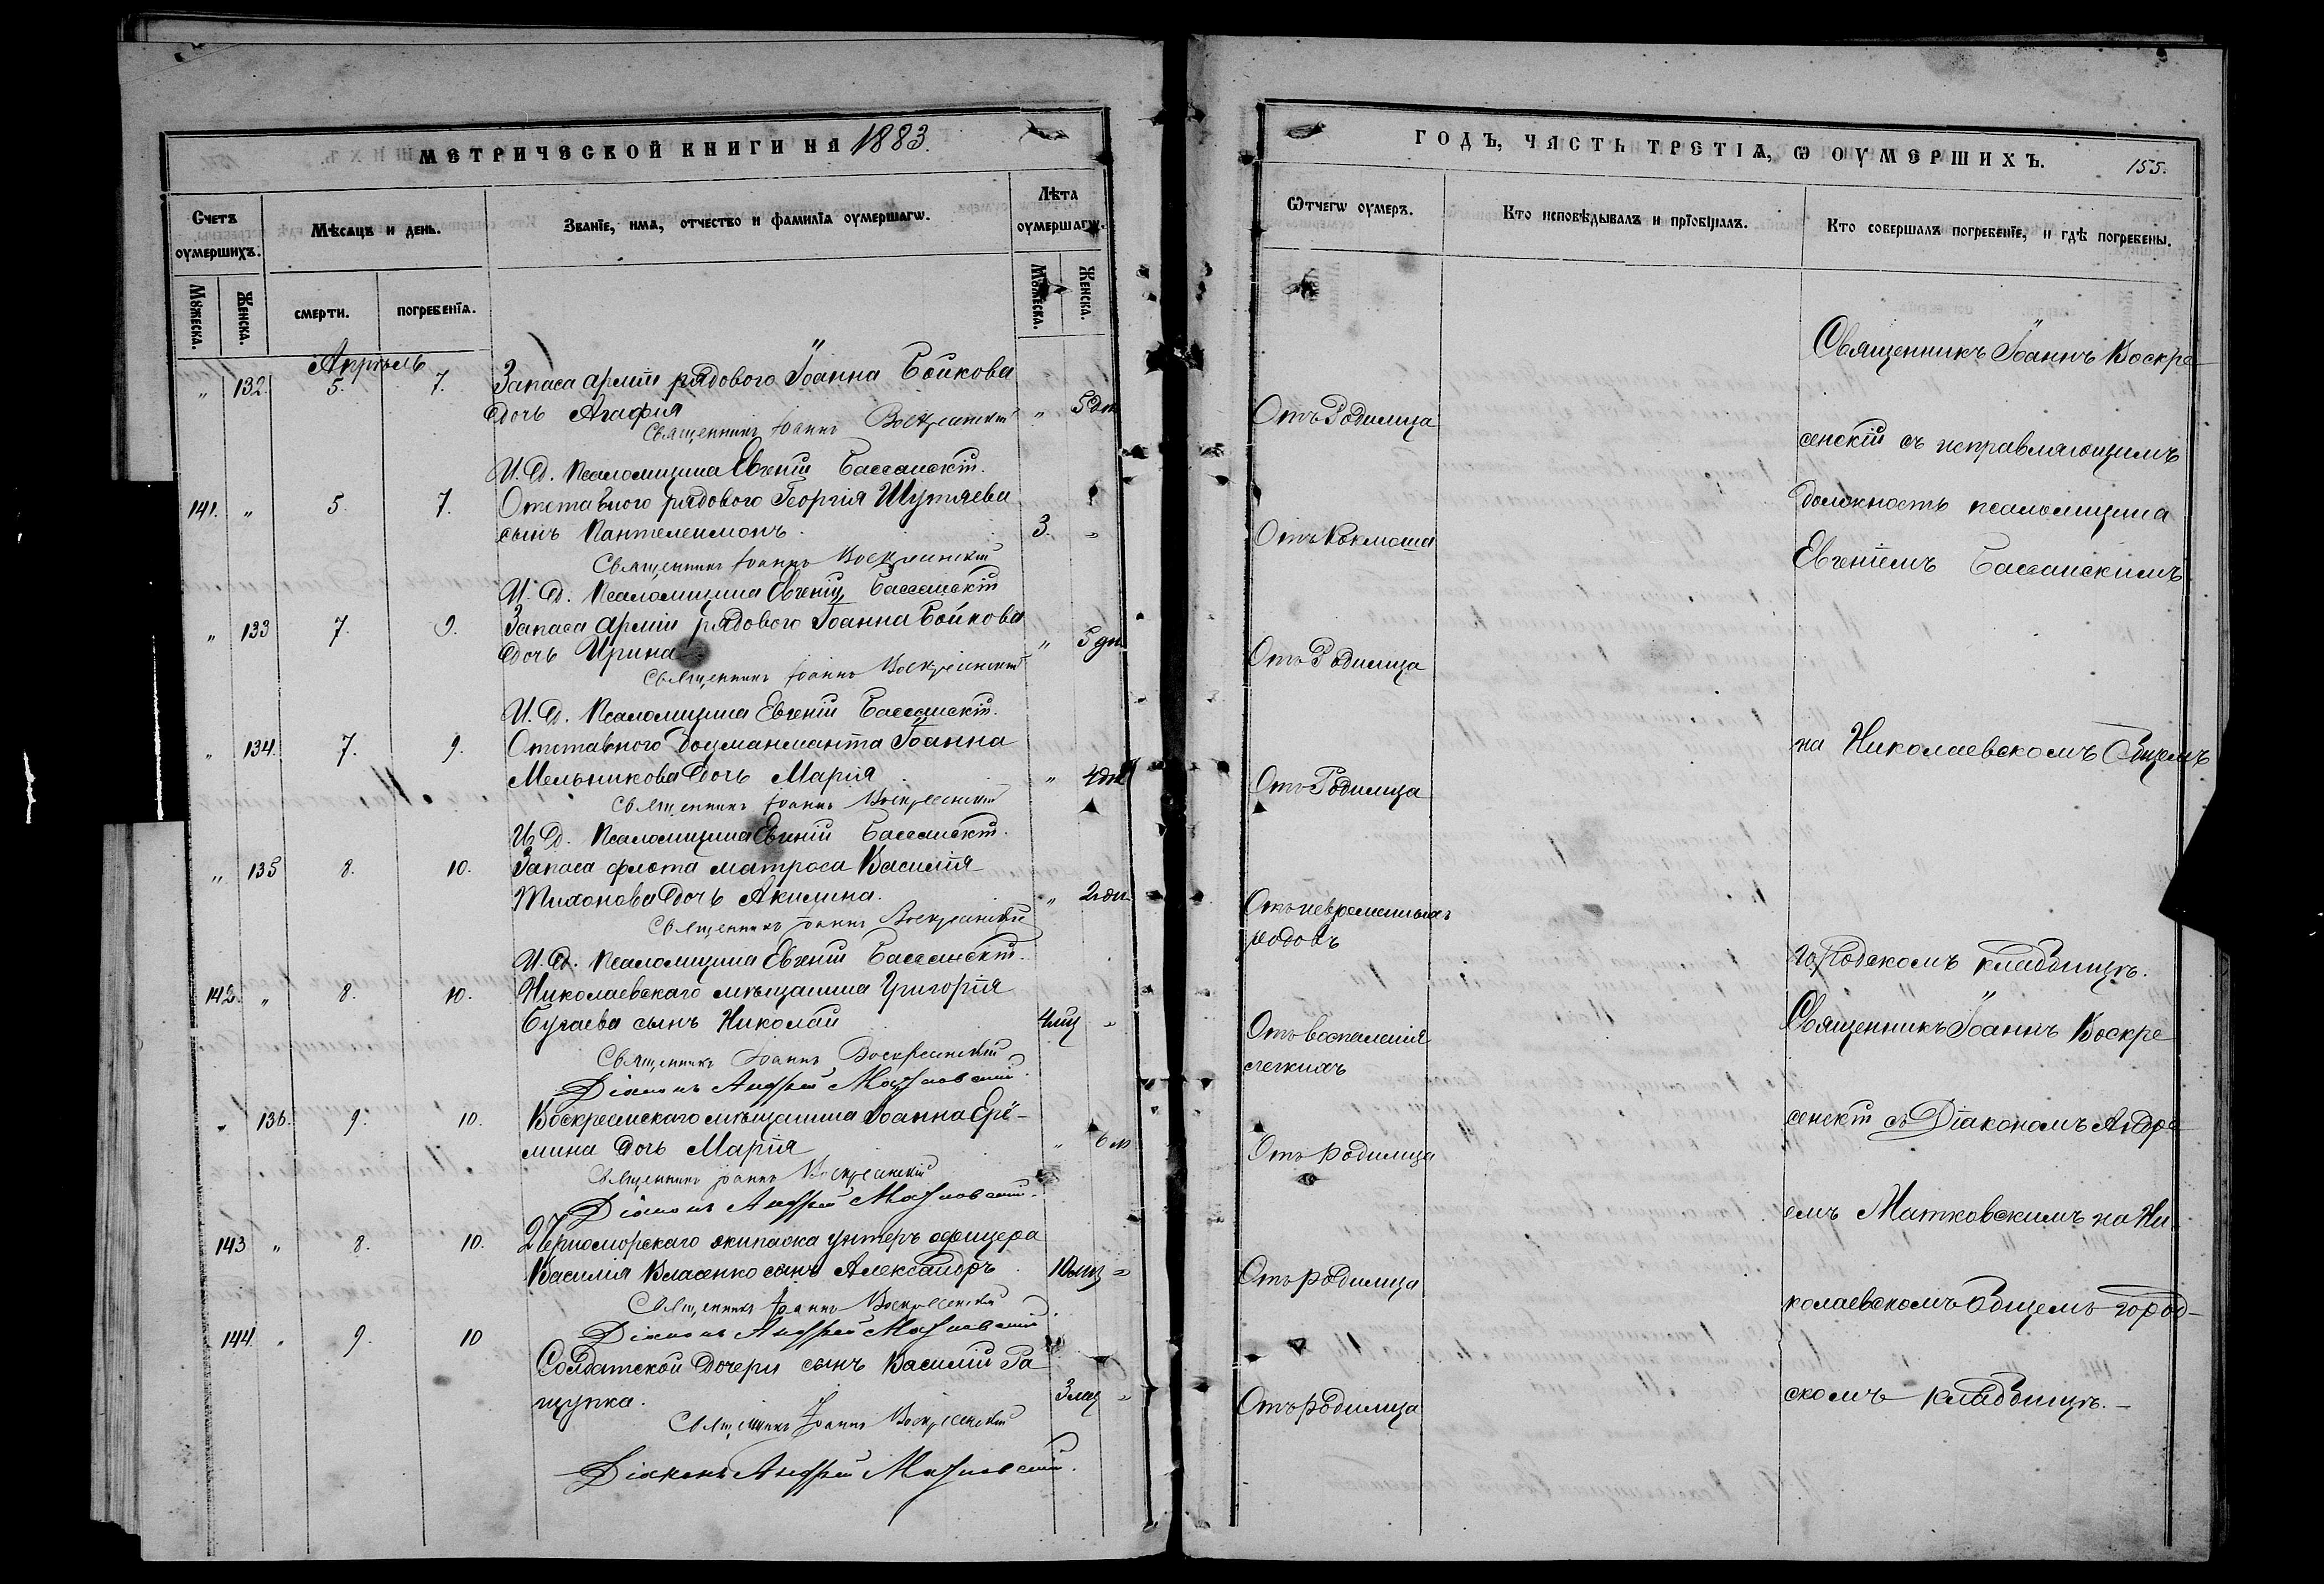 МЕТРИЧЕСКОЙ КНИГИ НА 1883.
Счетъ оумершихъ.
Мѣсяцъ и день.
Званїе, имѧ, отчество и фамилїѧ оумершагѡ.
Лѣта оумершагѡ.
Мꙋжеска.
Женска.
смерти.
погребенїѧ.
Мꙋжеска.
Женска.
Апрѣль
" 132. 5. 7. Запаса арміи рядового Іоанна Бойкова
дочь Агафия " 5 дн
Священникъ Іоаннъ Воскресенскій
И. д. Псаломщика Евгеній Бассанскій.
141. " 5 7. Отставного рядового Георгія Шутяева
сынъ Пантелеимонъ. 3. "
Священникъ Іоаннъ Воскресенскій
И. д. Псаломщика Евгеній Бассанскій
" 133 7. 9. Запаса арміи рядового Іоанна Бойкова
дочь Ирина " 5 дн
Священникъ Іоаннъ Воскресенскій
И. д. Псаломщика Евгеній Бассанскій.
" 134. 7. 9. Отставного Боцманманта Іоанна
Мельникова дочь Марія " 4 дн
Священникъ Іоаннъ Воскресенскій
И. д. Псаломщика Евгеній Бассанскій.
" 135 8. 10. Запаса флота матроса Василія
Тихонова дочь Акилина. " 2 дн.
Священникъ Іоаннъ Воскресенскій
И. д. Псаломщика Евгеній Бассанскій.
142. " 8. 10. Николаевскаго мѣщанина Григорія
Бугаева сынъ Николай 4 мц "
Священникъ Іоаннъ Воскресенскій
Діаконъ Андрей Матковскій.
" 136. 9. 10. Воскресенскаго мѣщанина Іоанна Ерё-
мина дочь Марія " 6 м
Священникъ Іоаннъ Воскресенскій
Діаконъ Андрей Матковскій.
143 " 8. 10. 2 Черноморскаго экипажа унтеръ офицера
Василія Власенко сынъ Александръ 10 мц "
Священникъ Іоаннъ Воскресенскій
Діаконъ Андрей Матковскій.
144. " 9. 10 Солдатской дочери сынъ Василій Ра
щупка. 3 мц "
Священникъ Іоаннъ Воскресенскій
Діаконъ Андрей Матковскій.
ГОДЪ, ЧАСТЬ ТРЕТІѦ, Ѡ ОУМЕРШИХЪ. 155.
Ѿчегѡ оумеръ.
Кто исповѣдывалъ и прїобщалъ.
Кто совершалъ погребенїе, и гдѣ погребены.
Отъ Родимца
Отъ Коклюша
Отъ Родимца
Отъ Родимца
Отъ невременныхъ
родовъ
Отъ воспаленія
легкихъ
Отъ родимца
Отъ родимца
Отъ родимца
Священникъ Іоаннъ Воскре
сенскій съ исправляющимъ
должность псаломщика
Евгеніемъ Бассанскимъ
на Николаевскомъ Общемъ
городскомъ кладбищѣ.
Священникъ Іоаннъ Воскре
сенскій съ Діакономъ Андре
емъ Матковскимъ на Ни-
колаевскомъ Общемъ город-
скомъ кладбищѣ.-